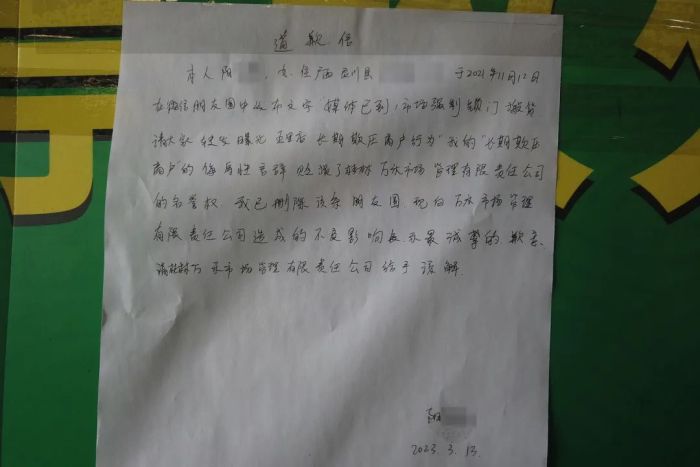 道歉信
本人阳 ，女，住广西灵川县 于2021年11月12日
在微信朋友圈中发布文字"媒体已到，市场强制锁门搬货
请大家转发曝光 五里店 长期欺压商户行为"我的"长期欺压
商户"的侮辱性言辞 贬损了桂林万禾市场管理有限责任公司
的名誉权 我已删除该条朋友圈 现向万禾市场管理
有限责任公司造成的不良影响表示最诚挚的歉意.
请桂林万禾市场管理有限责任公司给予谅解.
阳
2023.3.13.